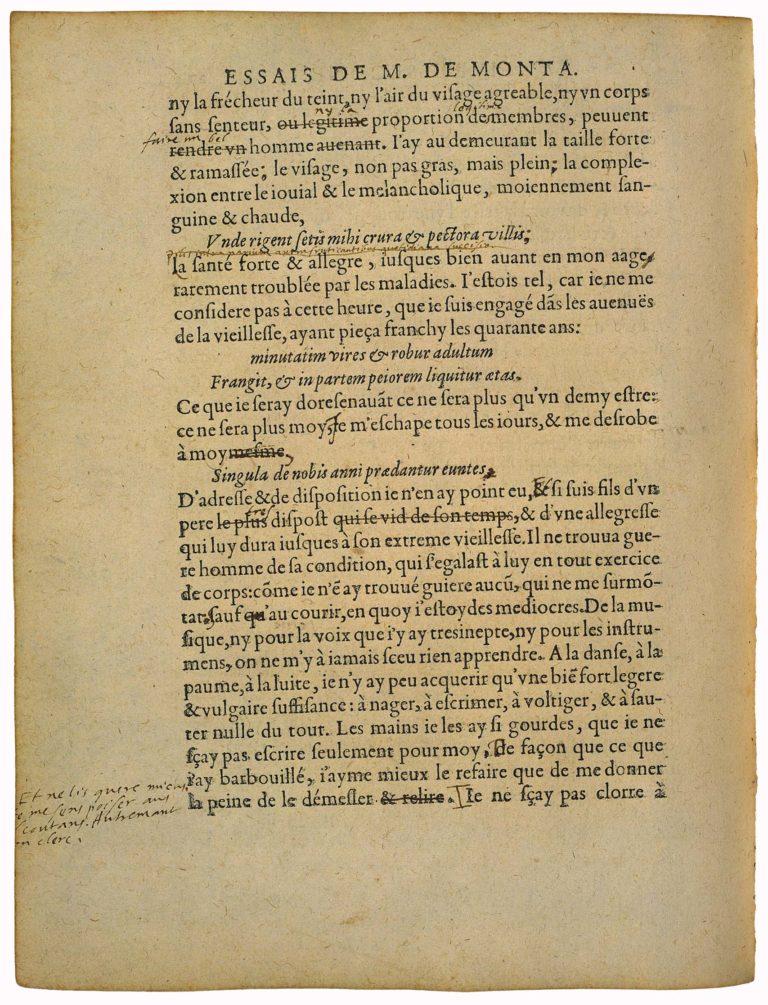 ESSAIS DE M. DE MONTA.
ny la frécheur du teint, ny l'air du viſage agreable, ny vn corps
ny la legitime
ſans ſenteur, ou legitime proportion de membres, peuuent
faire un bel
rendre vn homme auenant. I'ay au demeurant la taille forte
& ramaſſée; le viſage, non pas gras, mais plein; la comple-
xion entre le iouial & le melancholique, moiennement ſan-
guine & chaude,
Vnde rigent ſetis mihi crura & pectora villis;
la ſanté forte & allegre, iuſques bien auant en mon aage,
rarement troublée par les maladies. I'eſtois tel, car ie ne me
conſidere pas à cette heure, que ie ſuis engagé dãs les auenuës
de la vieilleſſe, ayant pieça franchy les quarante ans:
minutatim vires & robur adultum
Frangit, & in partem peiorem liquitur ætas.
Ce que ie ſeray doreſenauãt ce ne ſera plus qu'vn demy eſtre:
ce ne ſera plus moy, Ie m'eſchape tous les iours, & me deſrobe
à moy meſme,
Singula de nobis anni prædantur euntes.
D'adreſſe & de diſpoſition ie n'en ay point eu, & ſi ſuis fils d'vn
tres
pere le plus diſpoſt qui ſe vid de ſon temps, & d'vne allegreſſe
qui luy dura iuſques à ſon extreme vieilleſſe. Il ne trouua gue-
re homme de ſa condition, qui s'egalaſt à luy en tout exercice
de corps: cõme ie n'ẽ ay trouué guiere aucũ, qui ne me ſurmõ-
tat, ſauf qu'au courir, en quoy i'eſtoy des mediocres. De la mu-
ſique, ny pour la voix que i'y ay tresinepte, ny pour les inſtru-
mens, on ne m'y à iamais ſceu rien apprendre. A la danſe, à la
paume, à la luite, ie n'y ay peu acquerir qu'vne biẽ fort legere
& vulgaire ſuffiſance: à nager, à eſcrimer, à voltiger, & à ſau-
ter nulle du tout. Les mains ie les ay ſi gourdes, que ie ne
ſçay pas eſcrire ſeulement pour moy, De façon que ce que
i'ay barbouillé, i'ayme mieux le refaire que de me donner
la peine de le démeſler & relire. Ie ne ſçay pas clorre à
Et ne lis guere mieus
ie me sens poiser aus
escoutans. Autremant
on clerc.